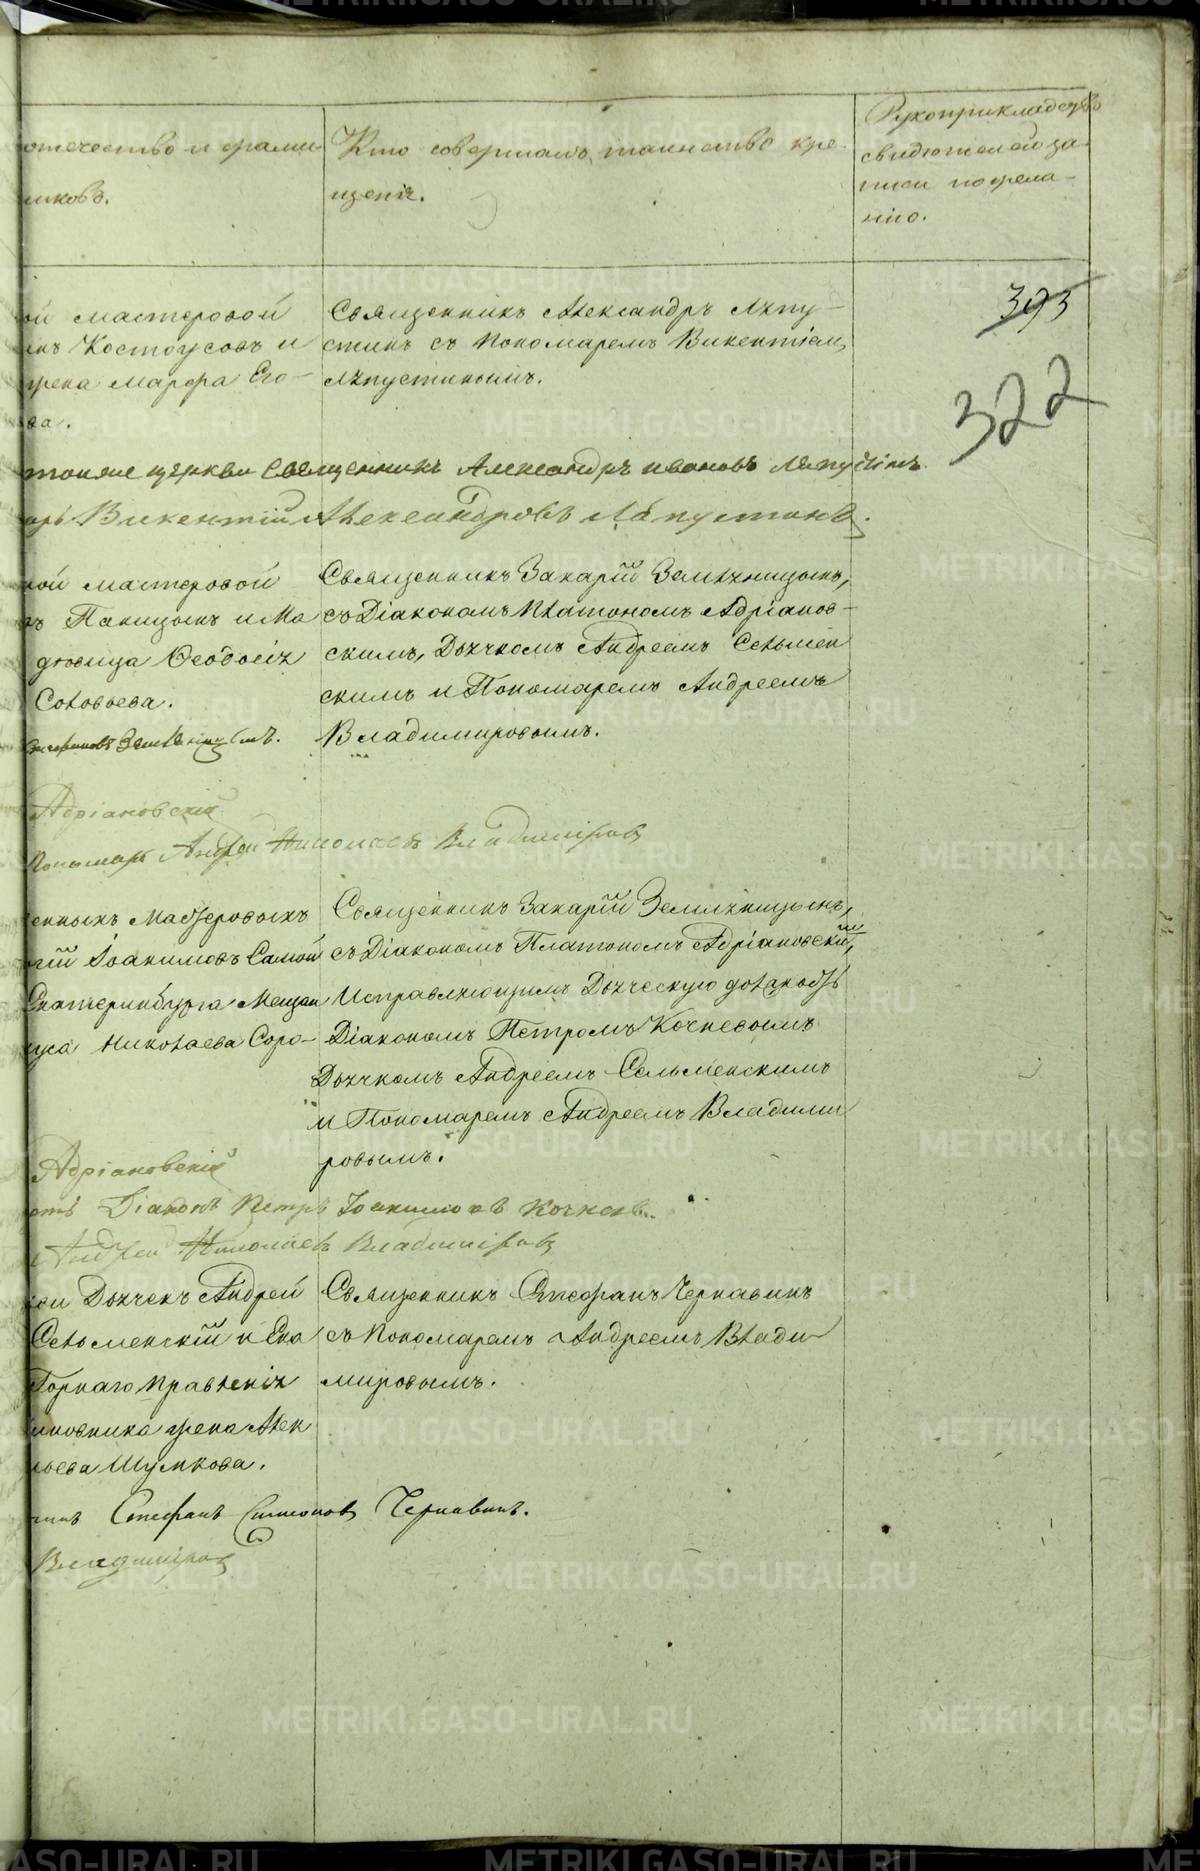 отечество и фами-
никовъ.
Кто совершалъ таинство кре-
щенія.
Рукоприкладство
свидетелей за-
писи по жела-
нію.
393
322
ой мастеровой
инъ Костоусовъ и
жена Марфа Его-
ва.
Священникъ Александръ Ляпу-
стинъ съ Пономаремъ Викентіем
Ляпустинымъ.
тояже церкви Священникъ Александръ Ивановъ Ляпустинъ
арь Викентій Александровъ Ляпустинъ.
ной мастеровой
ъ Паницынъ и Ма
довица Ѳеодосія
Соловьева.
Священникъ Захарій Земляницынъ,
съ Діакономъ Платономъ Адріанов-
скимъ, Дьячкомъ Андреемъ Сельмен
скимъ и Пономаремъ Андреемъ
Владимировымъ.
Стефановъ Земляницынъ.
Адріановскій
Пономарь Андрей Николаевъ Владиміровъ
енныхъ Мастеровыхъ
гій Іоакимовъ Самой
Екатеринбурга Мещан
уса Николаева Соро-
Священникъ Захарій Земляницынъ,
съ Діакономъ Платономъ Адріановскій,
Исправляющимъ Дьяческую должность
Діакономъ Петромъ Кочневымъ
Дьячкомъ Андреемъ Сельменскимъ
и Пономаремъ Андреемъ Владими
ровымъ.
Адріановскій
сть Діаконъ Петръ Іоакимовъ Кочневъ.
Андрей Николаевъ Владиміровъ
Дьячекъ Андрей
Сельменскій и Ека
Горнаго Правленія
иновника жена Алек
ьева Шумкова.
Священникъ Стефанъ Чернавинъ
съ Пономаремъ Андреемъ Влади
мировымъ.
Стефанъ Симеоновъ Чернавинъ.
Владиміровъ